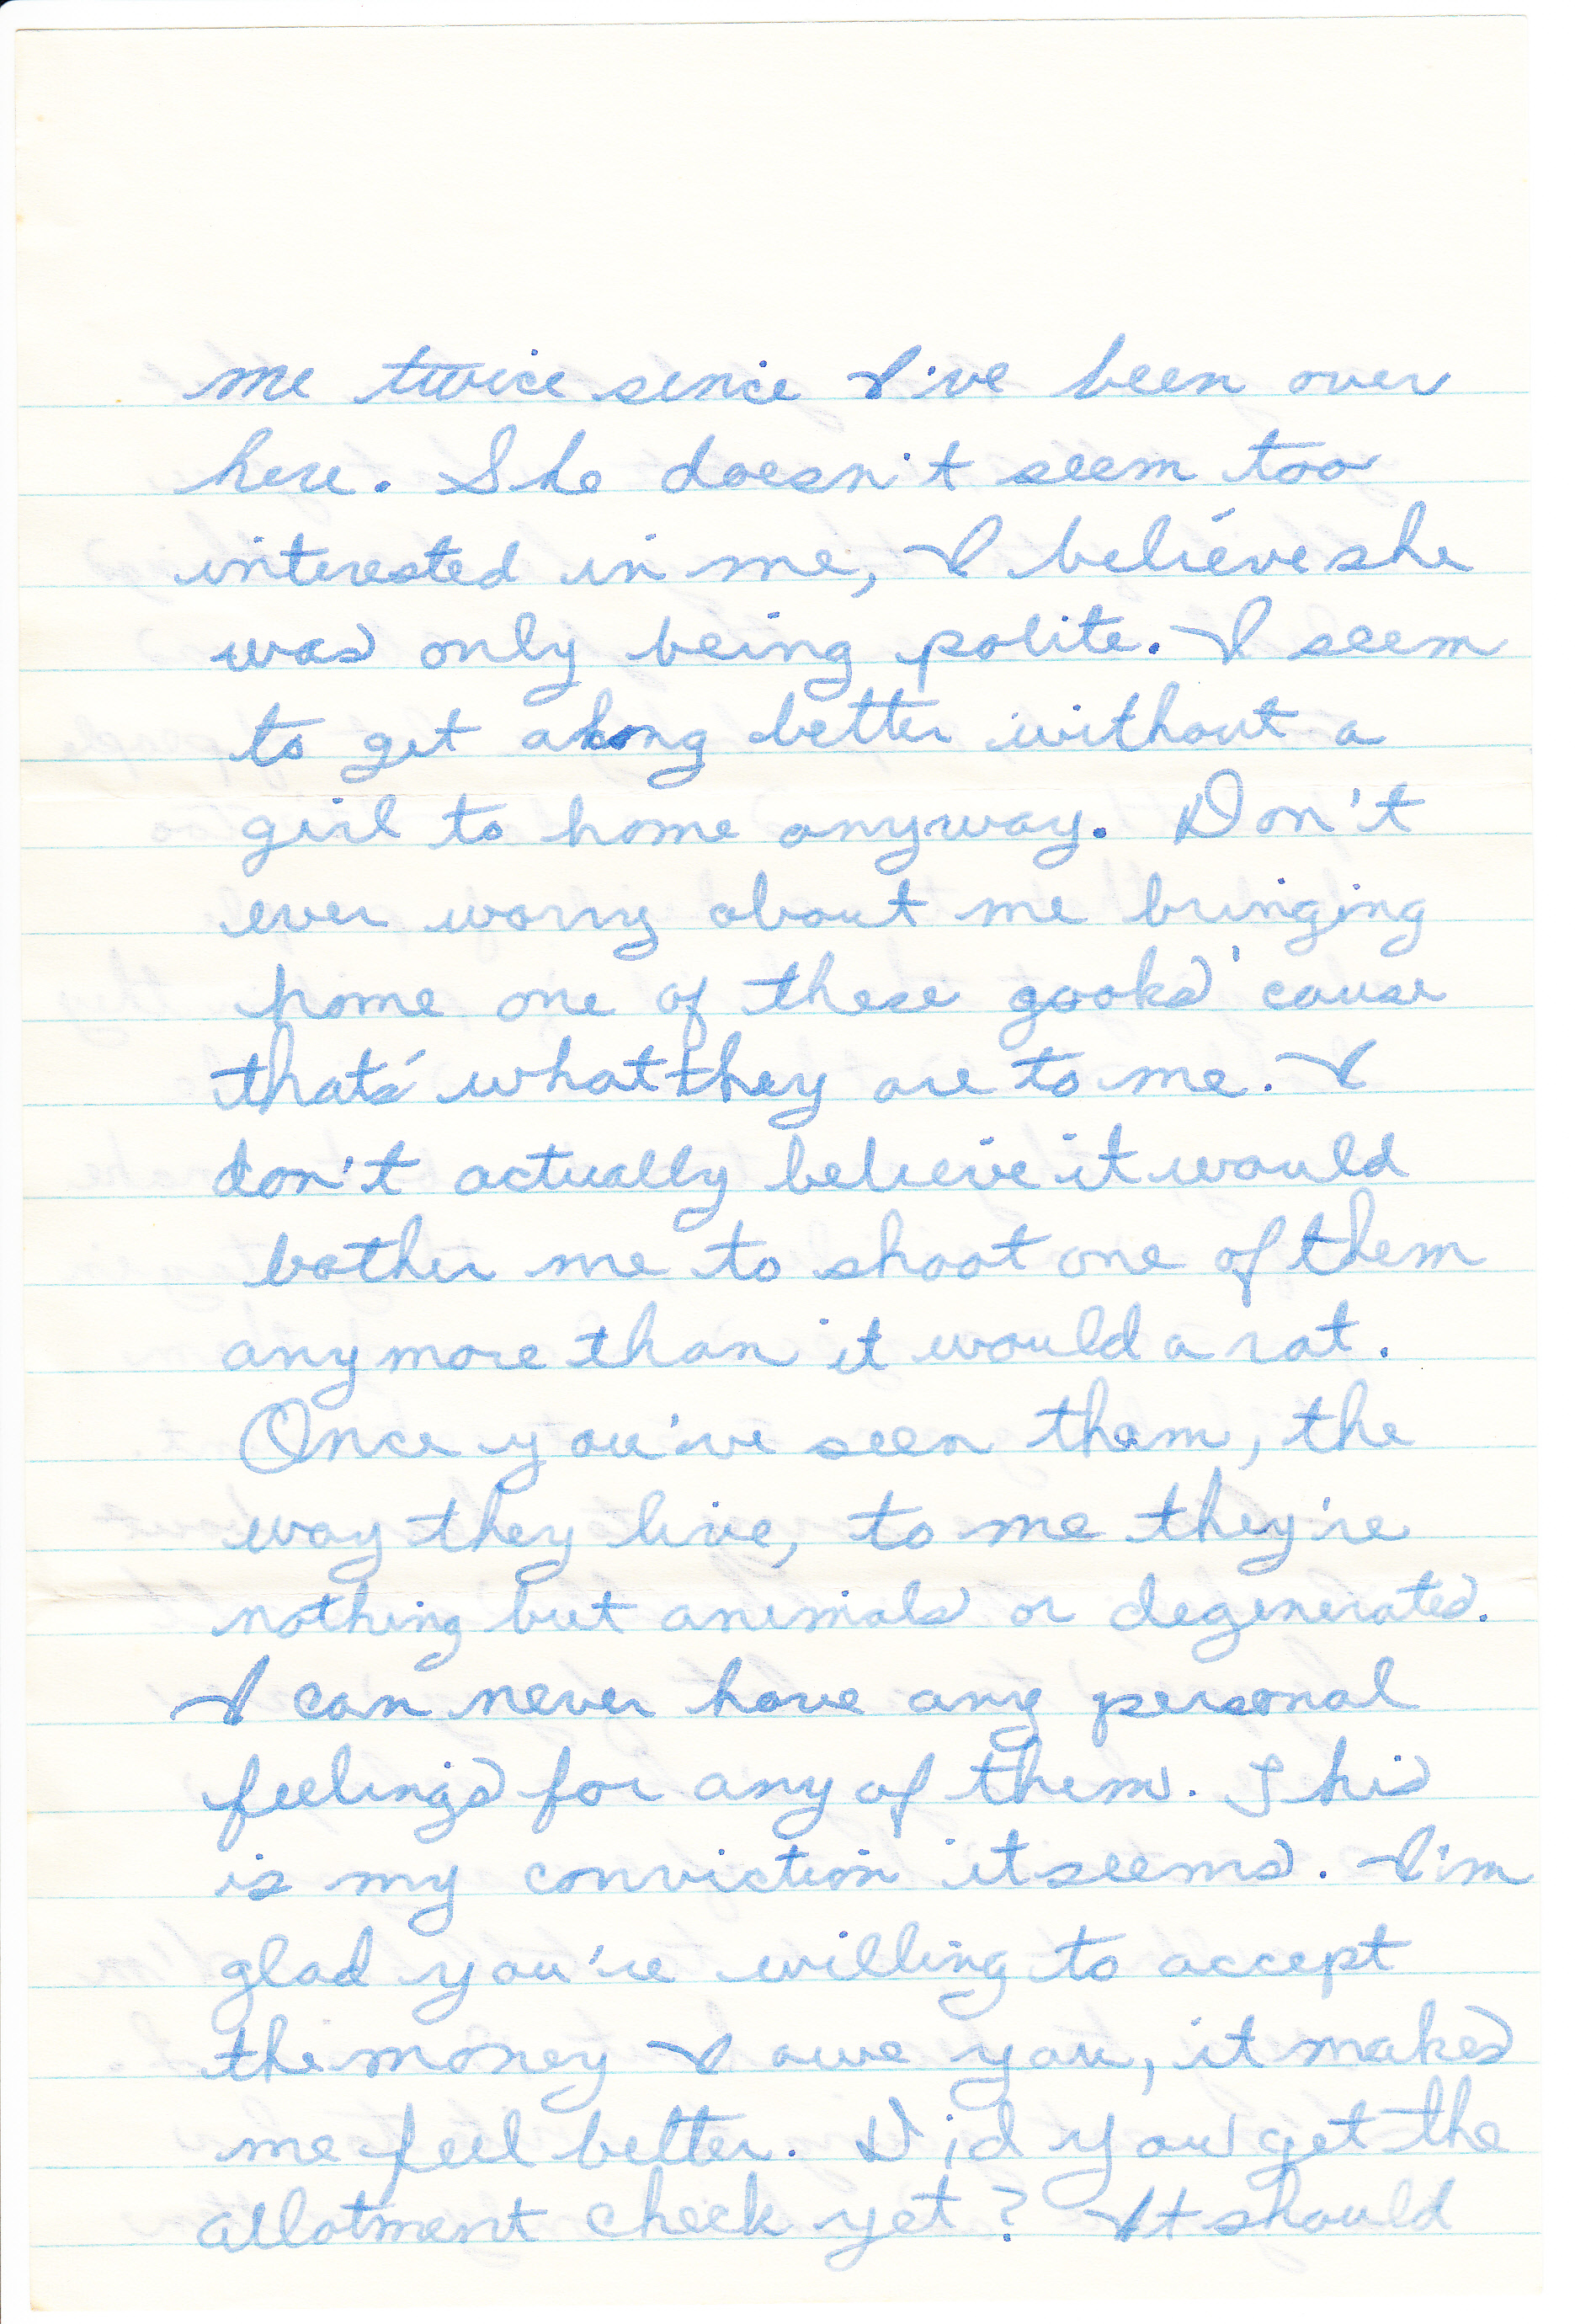 me twice sence I've been over
here. She doesn't seem too
interested in me, I believe she
was only being polite. I seem
to get along better without a
girl to home anyway. Don't
ever worry about me bringing
home one of these gooks 'cause
that's what they are to me. I
don't actually believe it would
bother me to shoot one of them
anymore than it would a rat.
Once you've seen them, the
way they live, to me they're
nothing but animals or degenerates.
I can never have any personal
feelings for any of them. This
is my conviction it seems. I'm
glad you're willing to accept
the money I owe you, it makes
me feel better. Did you get the
allotment check yet? It should